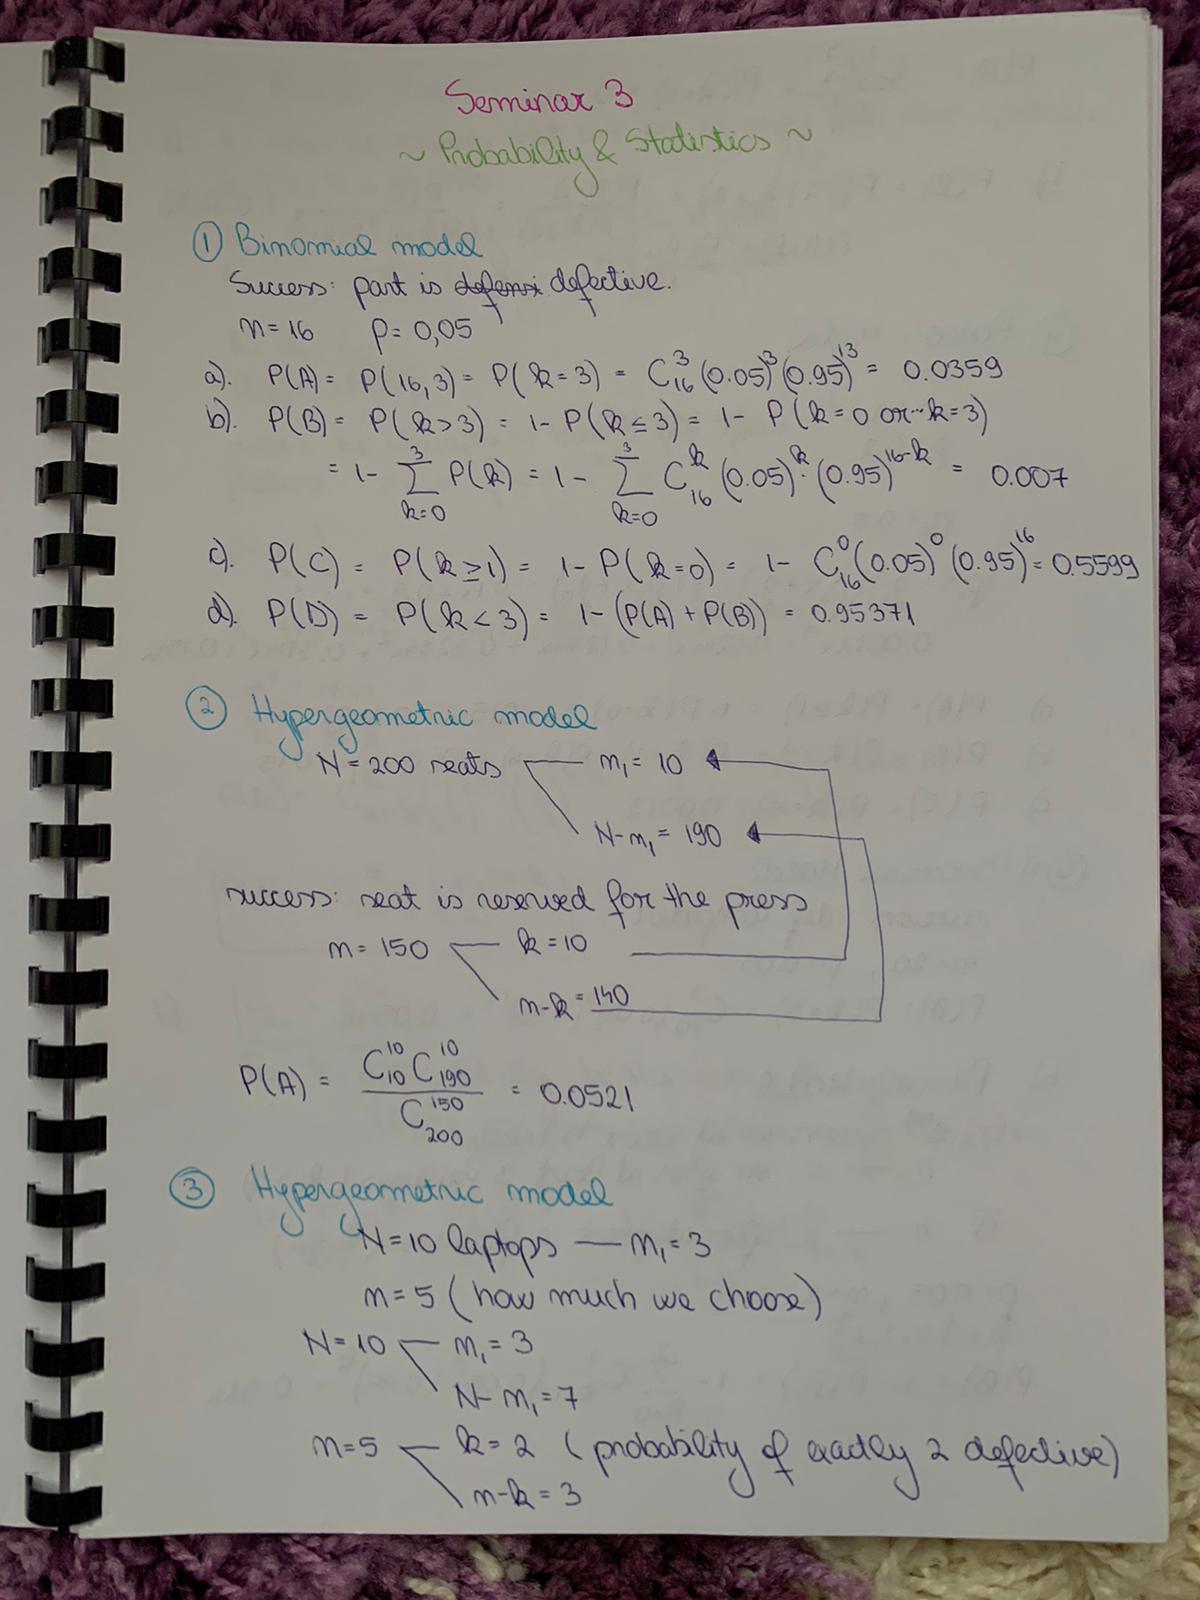 Seminar 3
~ Probability & Statistics ~
① Binomial model
Success: part is defensi defective.
n = 16 p = 0,05
a). P(A) = P(16,3) = P(k = 3) = C₁₆³ (0.05)³ (0.95)¹³ = 0.0359
b). P(B) = P(k > 3) = 1 - P(k ≤ 3) = 1 - P(k = 0 or ... k = 3)
= 1 - ∑_{k=0}^{3} P(k) = 1 - ∑_{k=0}^{3} C₁₆ᵏ (0.05)ᵏ · (0.95)¹⁶⁻ᵏ = 0.007
c). P(C) = P(k ≥ 1) = 1 - P(k = 0) = 1 - C₁₆⁰ (0.05)⁰ (0.95)¹⁶ = 0.5599
d). P(D) = P(k < 3) = 1 - (P(A) + P(B)) = 0.95371
② Hypergeometric model
N = 200 seats n₁ = 10
N - n₁ = 190
success: seat is reserved for the press
n = 150 k = 10
n - k = 140
P(A) = C₁₀¹⁰ C₁₉₀¹⁰ / C₂₀₀¹⁵⁰ = 0.0521
③ Hypergeometric model
N = 10 laptops — n₁ = 3
n = 5 (how much we choose)
N = 10 n₁ = 3
N - n₁ = 7
n = 5 k = 2 (probability of exactly 2 defective)
n - k = 3